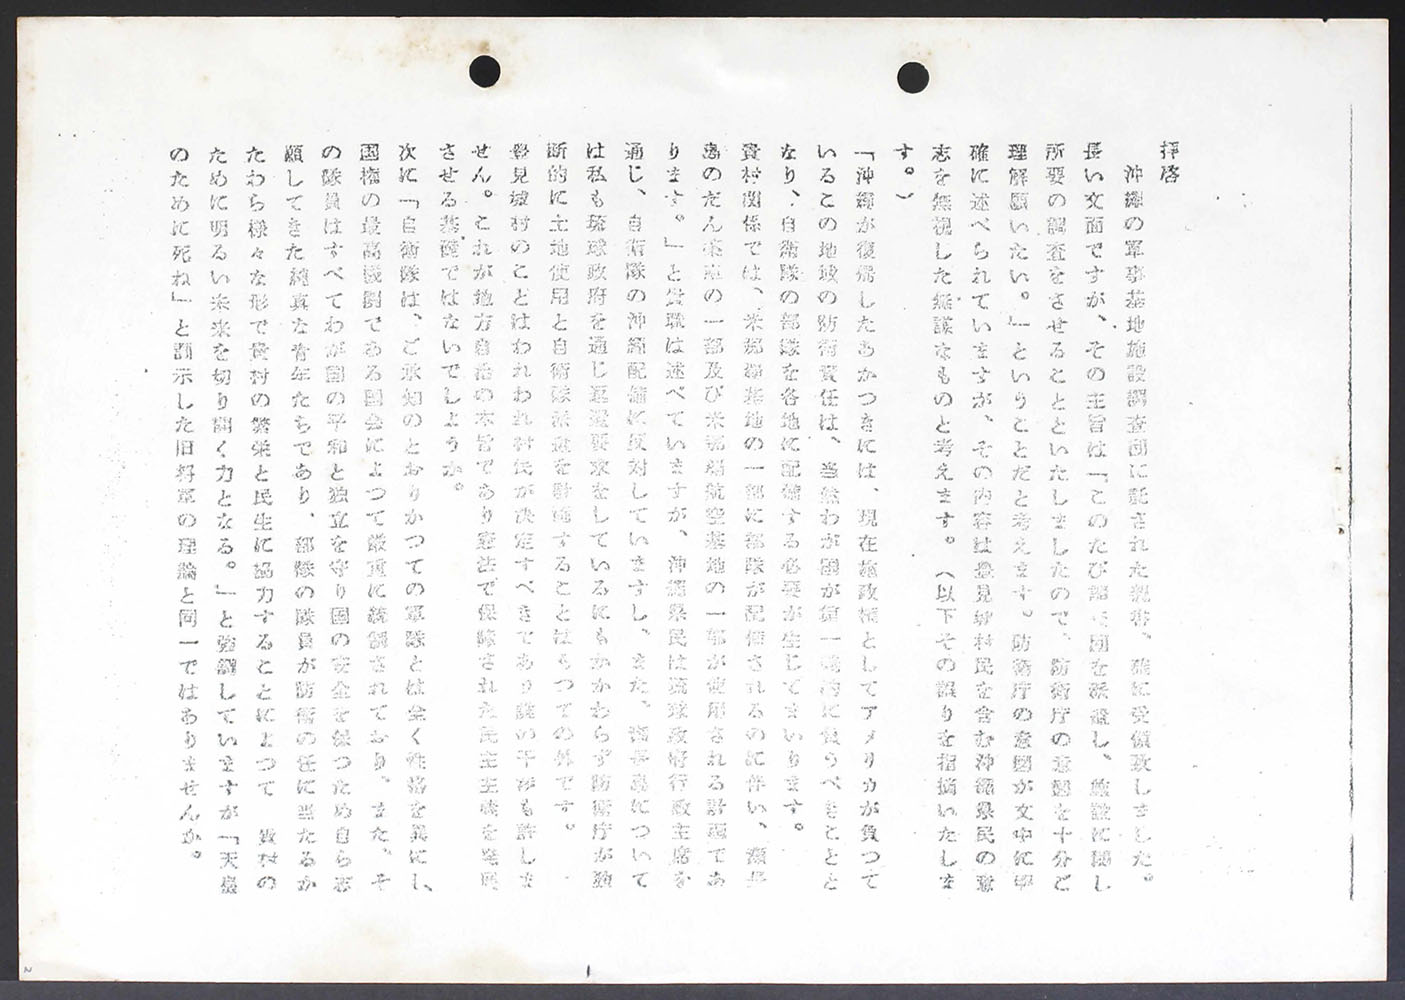 拝啓
沖縄の軍事基地施設調査団に託された親書、確に受領致しました。
長い文面ですが、その主旨は「このたび調査団を派遣し、施設に関し
所要の調査をさせることといたしましたので、防衛庁の意図を十分ご
理解願いたい。」ということだと考えます。防衛庁の意図が文中に明
確に述べられていますが、その内容は豊見城村民を含む沖縄県民の意
志を無視した無謀なものと考えます。(以下その誤りを指摘いたしま
す。)
「沖縄が復帰したあかつきには、現在施政権としてアメリカが負つて
いるこの地域の防衛責任は、当然わが国が第一義的に負うべきことと
なり、自衛隊の部隊を各地に配備する必要が生じてまいります。
貴村関係では、米那覇基地の一部に部隊が配備されるのに伴い、瀬長
島のだん薬庫の一部及び米那覇航空基地の一部が使用される計画であ
ります。」と貴職は述べていますが、沖縄県民は琉球政府行政主席を
通じ、自衛隊の沖縄配備に反対していますし、また、瀬長島について
は私も琉球政府を通じ返還要求をしているにもかかわらず防衛庁が独
断的に土地使用と自衛隊派遣を計画することはもつての外です。
豊見城村のことはわれわれ村民が決定すべきであり誰の干渉も許しま
せん。これが地方自治の本旨であり憲法で保障された民主主義を発展
させる基礎ではないでしようか。
次に「自衛隊は、ご承知のとおりかつての軍隊とは全く性格を異にし、
国権の最高機関である国会によつて厳重に統制されており、また、そ
の隊員はすべてわが国の平和と独立を守り国の安全を保つため自ら志
願してきた純真な青年たちであり、部隊の隊員が防衛の任に当たるか
たわら様々な形で貴村の繁栄と民生に協力することによつて 貴村の
ために明るい未来を切り開く力となる。」と強調していますが「天皇
のために死ね」と訓示した旧将軍の理論と同一ではありませんか。